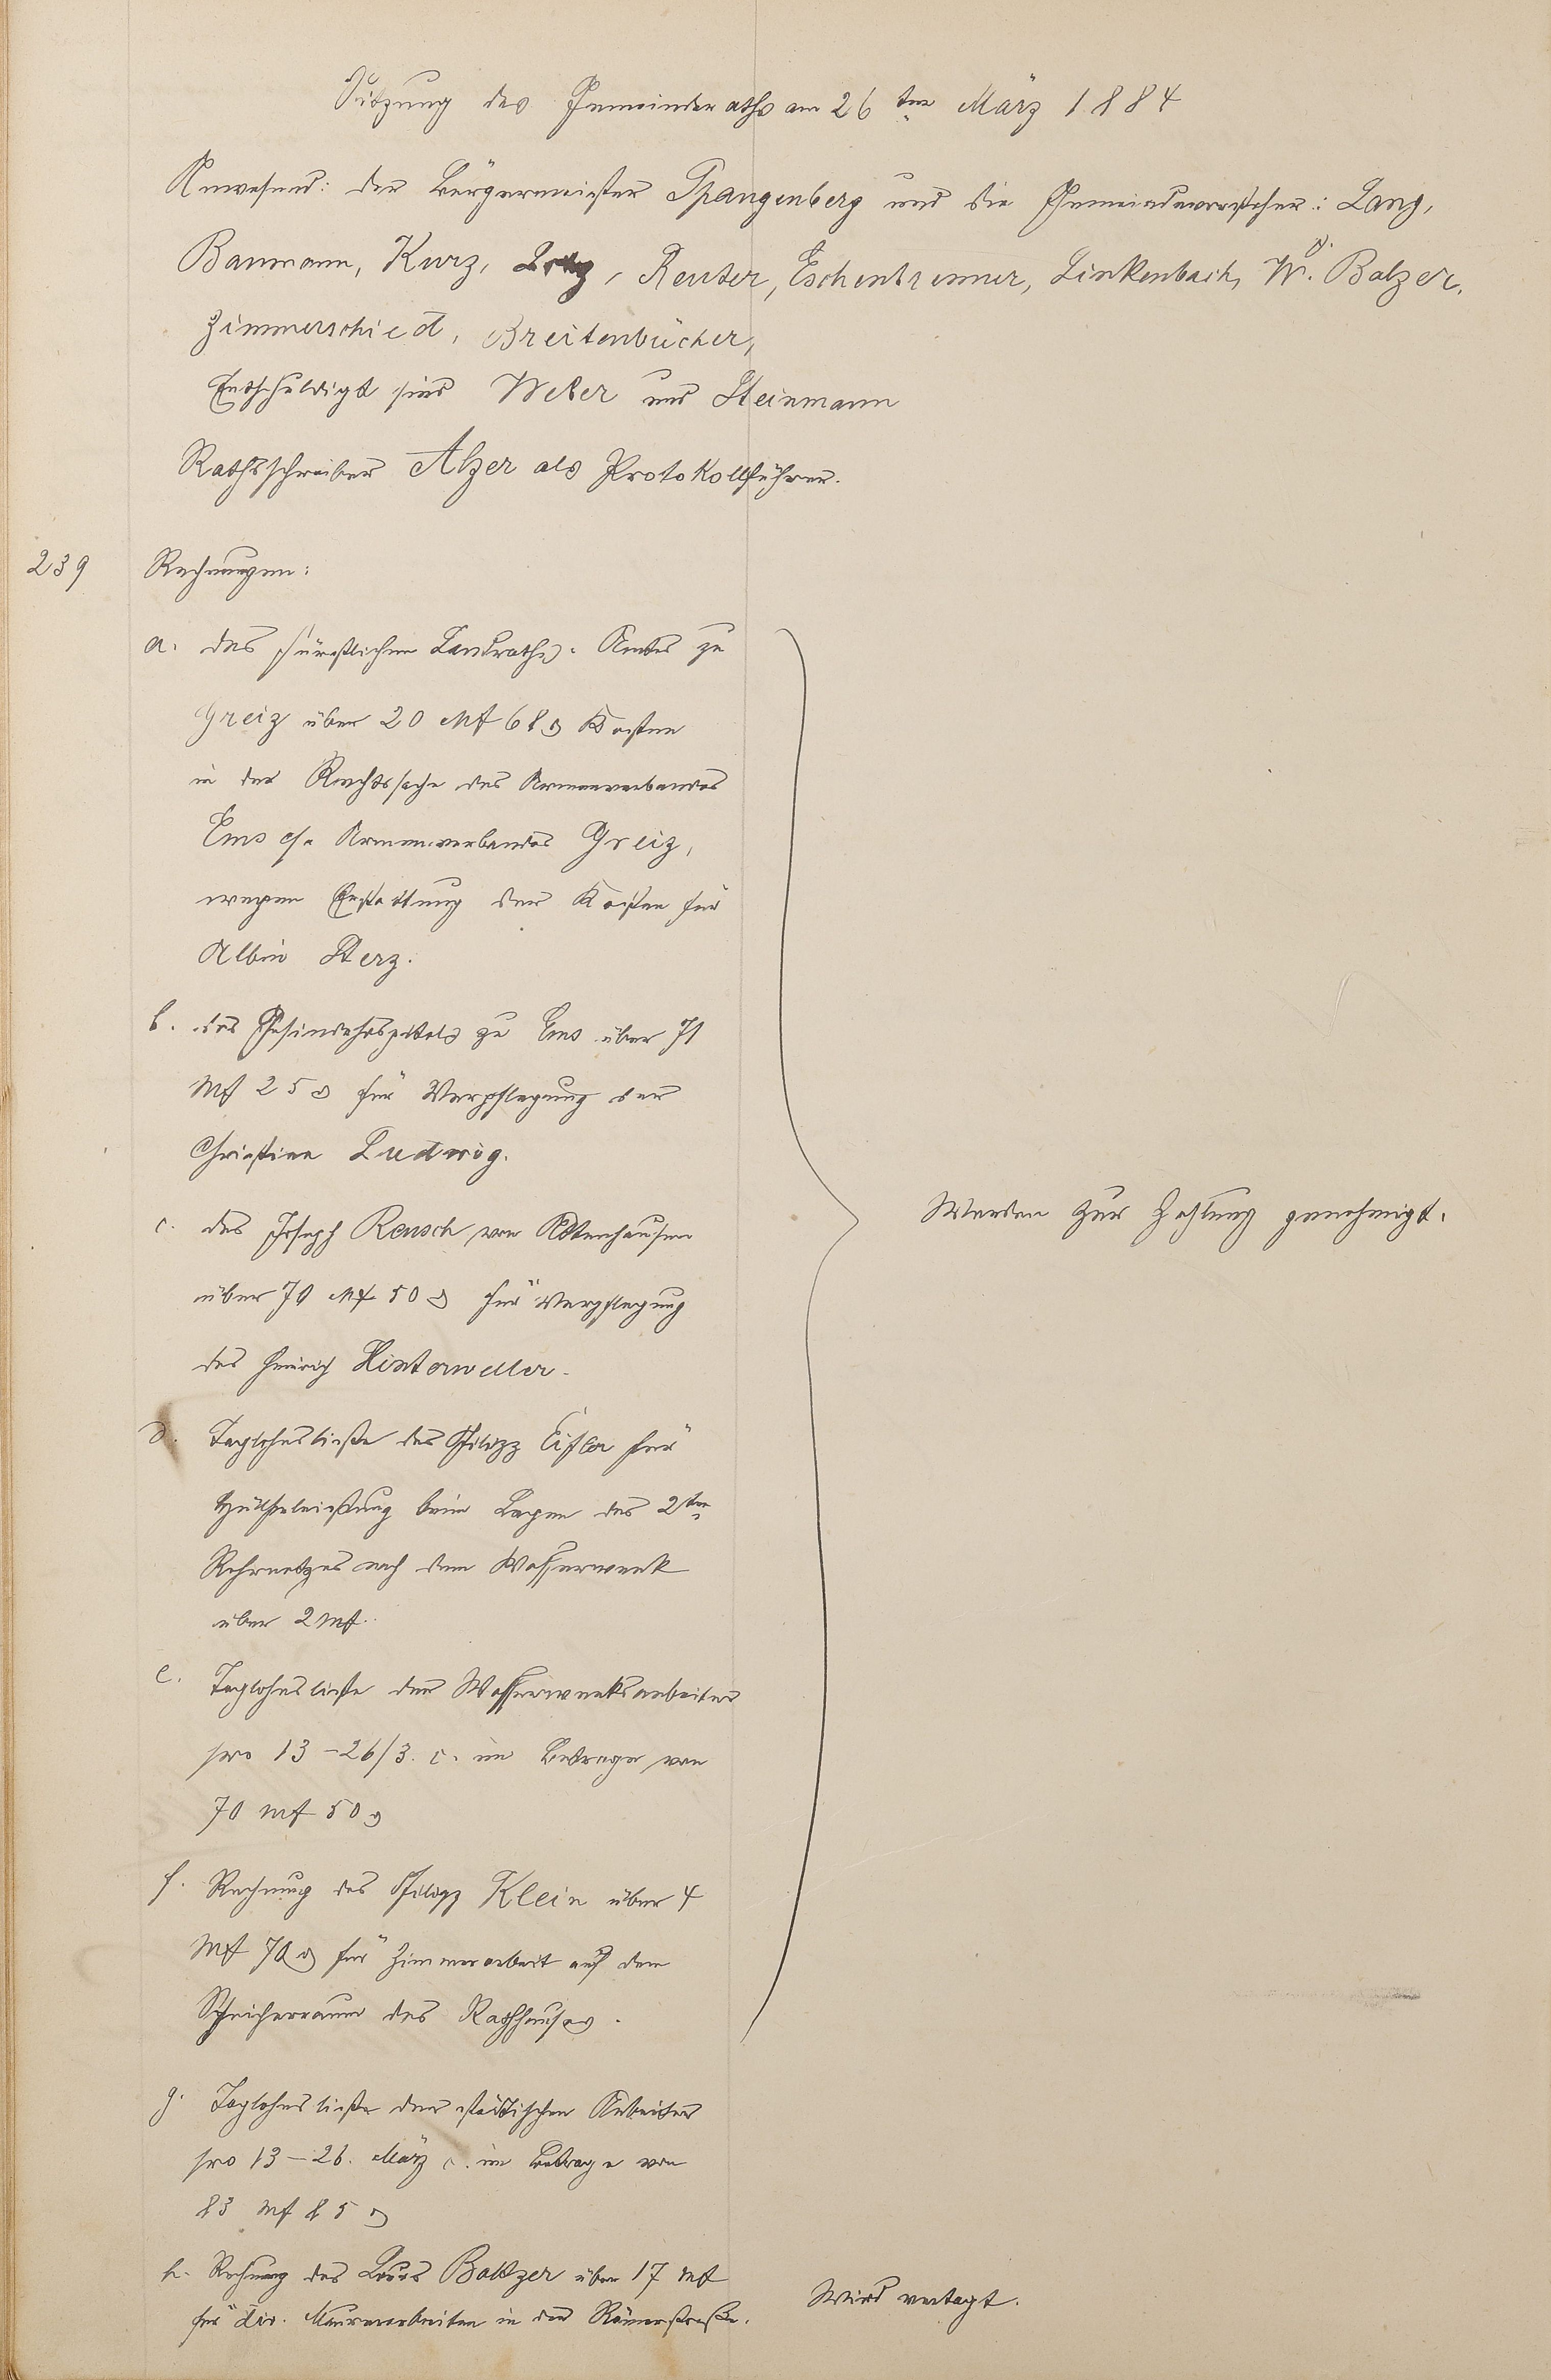 Sitzung des Gemeinderaths am 26ten März 1884
Anwesend: der Bürgermeister Spangenberg und die Gemeindevorsteher: Lang,
Baumann, Kurz, Reuter, Eschenbrenner, Linkenbach, W. Balzer,
Zimmerschied, Breitenbücher,
Entschuldigt sind Weber und Steinmann
Rathsschreiber Alzer als Protokollführer.
239 Rechnungen:
a. des fürstlichen Landraths-Amtes zu
Greiz über 20 Mk 68 ₰ Kosten
in der Rechtssache des Armenverbandes
Ems c/a Armenverbandes Greiz,
wegen Erstattung der Kosten für
Albin Sterz.
b. des Gesindehospitals zu Ems über 71
Mk 25 ₰ für Verpflegung der
Christine Ludwig.
c. des Joseph Reusch von Attenhausen
über 70 Mk 50 ₰ für Verpflegung
des Heinrich Hinterweller.
d. Taglohnsliste des Philipp Eifler für
Hülfeleistung beim Legen des 2ten
Rohrnetzes nach dem Wasserwerk
über 2 Mk.
e. Taglohnsliste der Wasserwerksarbeiter
pro 13-26/3. c. im Betrage von
70 Mk 50 ₰
f. Rechnung des Philipp Klein über 4
Mk 70 ₰ für Zimmerarbeit auf dem
Speicherraum des Rathhauses.
Werden zur Zahlung genehmigt.
g. Taglohnsliste der städtischen Arbeiter
pro 13-26. März c. im Betrage von
83 Mk 85 ₰
h. Rechnung des Louis Baltzer über 17 Mk
für div. Maurerarbeiten in der Römerstraße.
Wird vertagt.